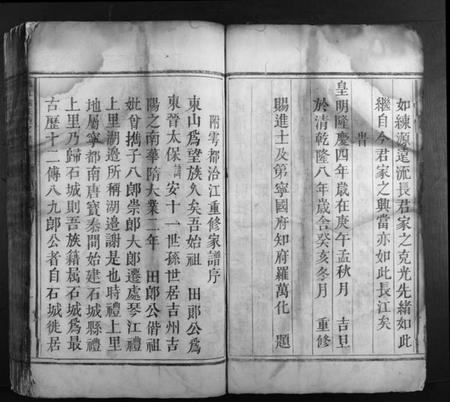 如練源遠流長君家之克光先緒如此
繼自今君家之興當亦如此長江矣
旹
皇明隆慶四年歲在庚午孟秋月 吉旦
於清乾隆八年歲舍癸亥冬月 重修
賜進士及第寧國府知府羅萬化 題
附雩都洽江重修家譜序
東山為望族久矣吾始祖 田郎公為
東晉太保諱安十一世孫世居吉州吉
陽之南華隋大業二年 田郎公偕祖
妣曾攜子八郎崇郎大郎遷處琴江禮
上里湖邉所稱湖邉謝是也時禮上里
地屬寧都南唐寶泰間始建石城縣禮
上里乃歸石城則吾族籍属石城為最
古歷十二傳八九郎公者自石城徙居